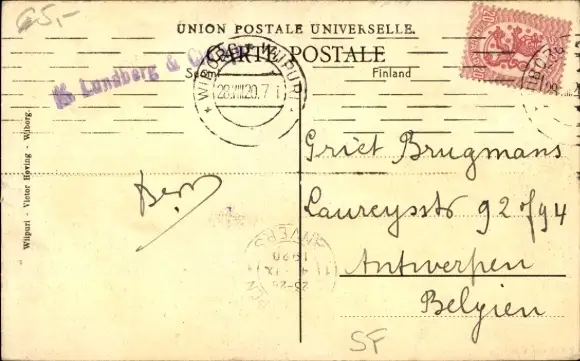 65,-
UNION POSTALE UNIVERSELLE.
CARTE POSTALE
Suomi Finland
Lundberg &
WIBORG WIIPURI
28.VIII.20.7
Griet Brugmans
Laureysstr 92 of 94
Antwerpen
Belgien
1920
SF
Wiipuri - Victor Hoving - Wiborg.